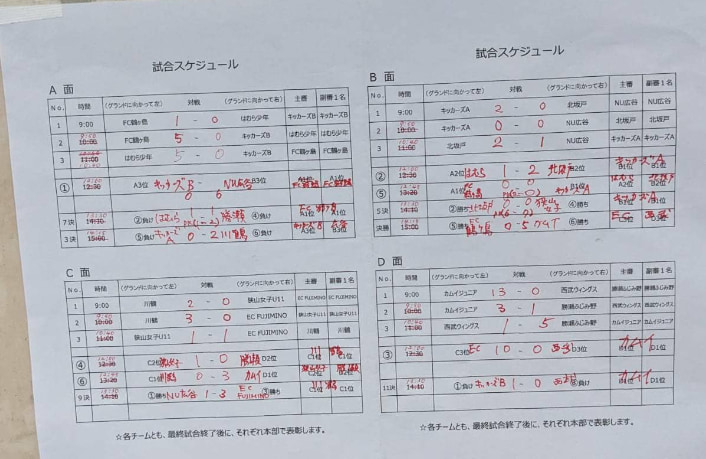 試合スケジュール
A 面
No. 時間 (グランドに向かって左) 対戦 (グランドに向かって右) 主審 副審1名
1 9:00 FC鶴ヶ島 1 - 0 はむら少年 キッカーズB キッカーズB
2 10:00 FC鶴ヶ島 5 - 0 キッカーズB はむら少年 はむら少年
3 11:00 はむら少年 5 - 0 キッカーズB FC鶴ヶ島 FC鶴ヶ島
① 12:30 A3位 キッカーズB - NU広谷 B3位 A1位
0 6
7決 14:10 ②負け はむら 1 - 1 勝瀬 ④負け A1位
3決 15:00 ⑤負け キッカーズA 0 - 2 川鶴 ⑥負け A3位 B3位
試合スケジュール
B 面
No. 時間 (グランドに向かって左) 対戦 (グランドに向かって右) 主審 副審1名
1 9:00 キッカーズA 2 - 0 北坂戸 NU広谷 NU広谷
2 10:00 キッカーズA 0 - 0 NU広谷 北坂戸 北坂戸
3 11:00 北坂戸 2 - 1 NU広谷 キッカーズA キッカーズA
② 12:30 A2位 はむら 1 - 2 北坂戸 B2位 キッカーズA B1位
⑤ 13:20 A1位 0 - 0 キッカーズA
5決 14:10 ②勝ち 北坂戸 0 - 0 狭山女子 ④勝ち キッカーズA
決勝 15:00 ⑤勝ち FC鶴ヶ島 0 - 5 カムイ ⑥勝ち
C 面
No. 時間 (グランドに向かって左) 対戦 (グランドに向かって右) 主審 副審1名
1 9:00 川鶴 2 - 0 狭山女子U11 EC FUJIMINO EC FUJIMINO
2 10:00 川鶴 3 - 0 EC FUJIMINO 狭山女子U11 狭山女子U11
3 11:00 狭山女子U11 1 - 1 EC FUJIMINO 川鶴 川鶴
④ 12:30 C2位 狭山女子 1 - 0 勝瀬 D2位 C1位 C1位
⑥ 13:20 C1位 川鶴 0 - 3 カムイ D1位 C2位
9決 14:10 ①勝ち NU広谷 1 - 3 EC FUJIMINO ③勝ち C1位 C1位
☆各チームとも、最終試合終了後に、それぞれ本部で表彰します。
D 面
No. 時間 (グランドに向かって左) 対戦 (グランドに向かって右) 主審 副審1名
1 9:00 カムイジュニア 13 - 0 西武ウイングス 勝瀬ふじみ野 勝瀬ふじみ野
2 10:00 カムイジュニア 3 - 1 勝瀬ふじみ野 西武ウイングス 西武ウイングス
3 11:00 西武ウイングス 1 - 5 勝瀬ふじみ野 カムイジュニア カムイジュニア
③ 12:30 C3位 EC 10 - 0 西武 D3位 カムイ D1位
11決 14:10 ①負け キッカーズB 1 - 0 西武 ③負け カムイ D1位
☆各チームとも、最終試合終了後に、それぞれ本部で表彰します。